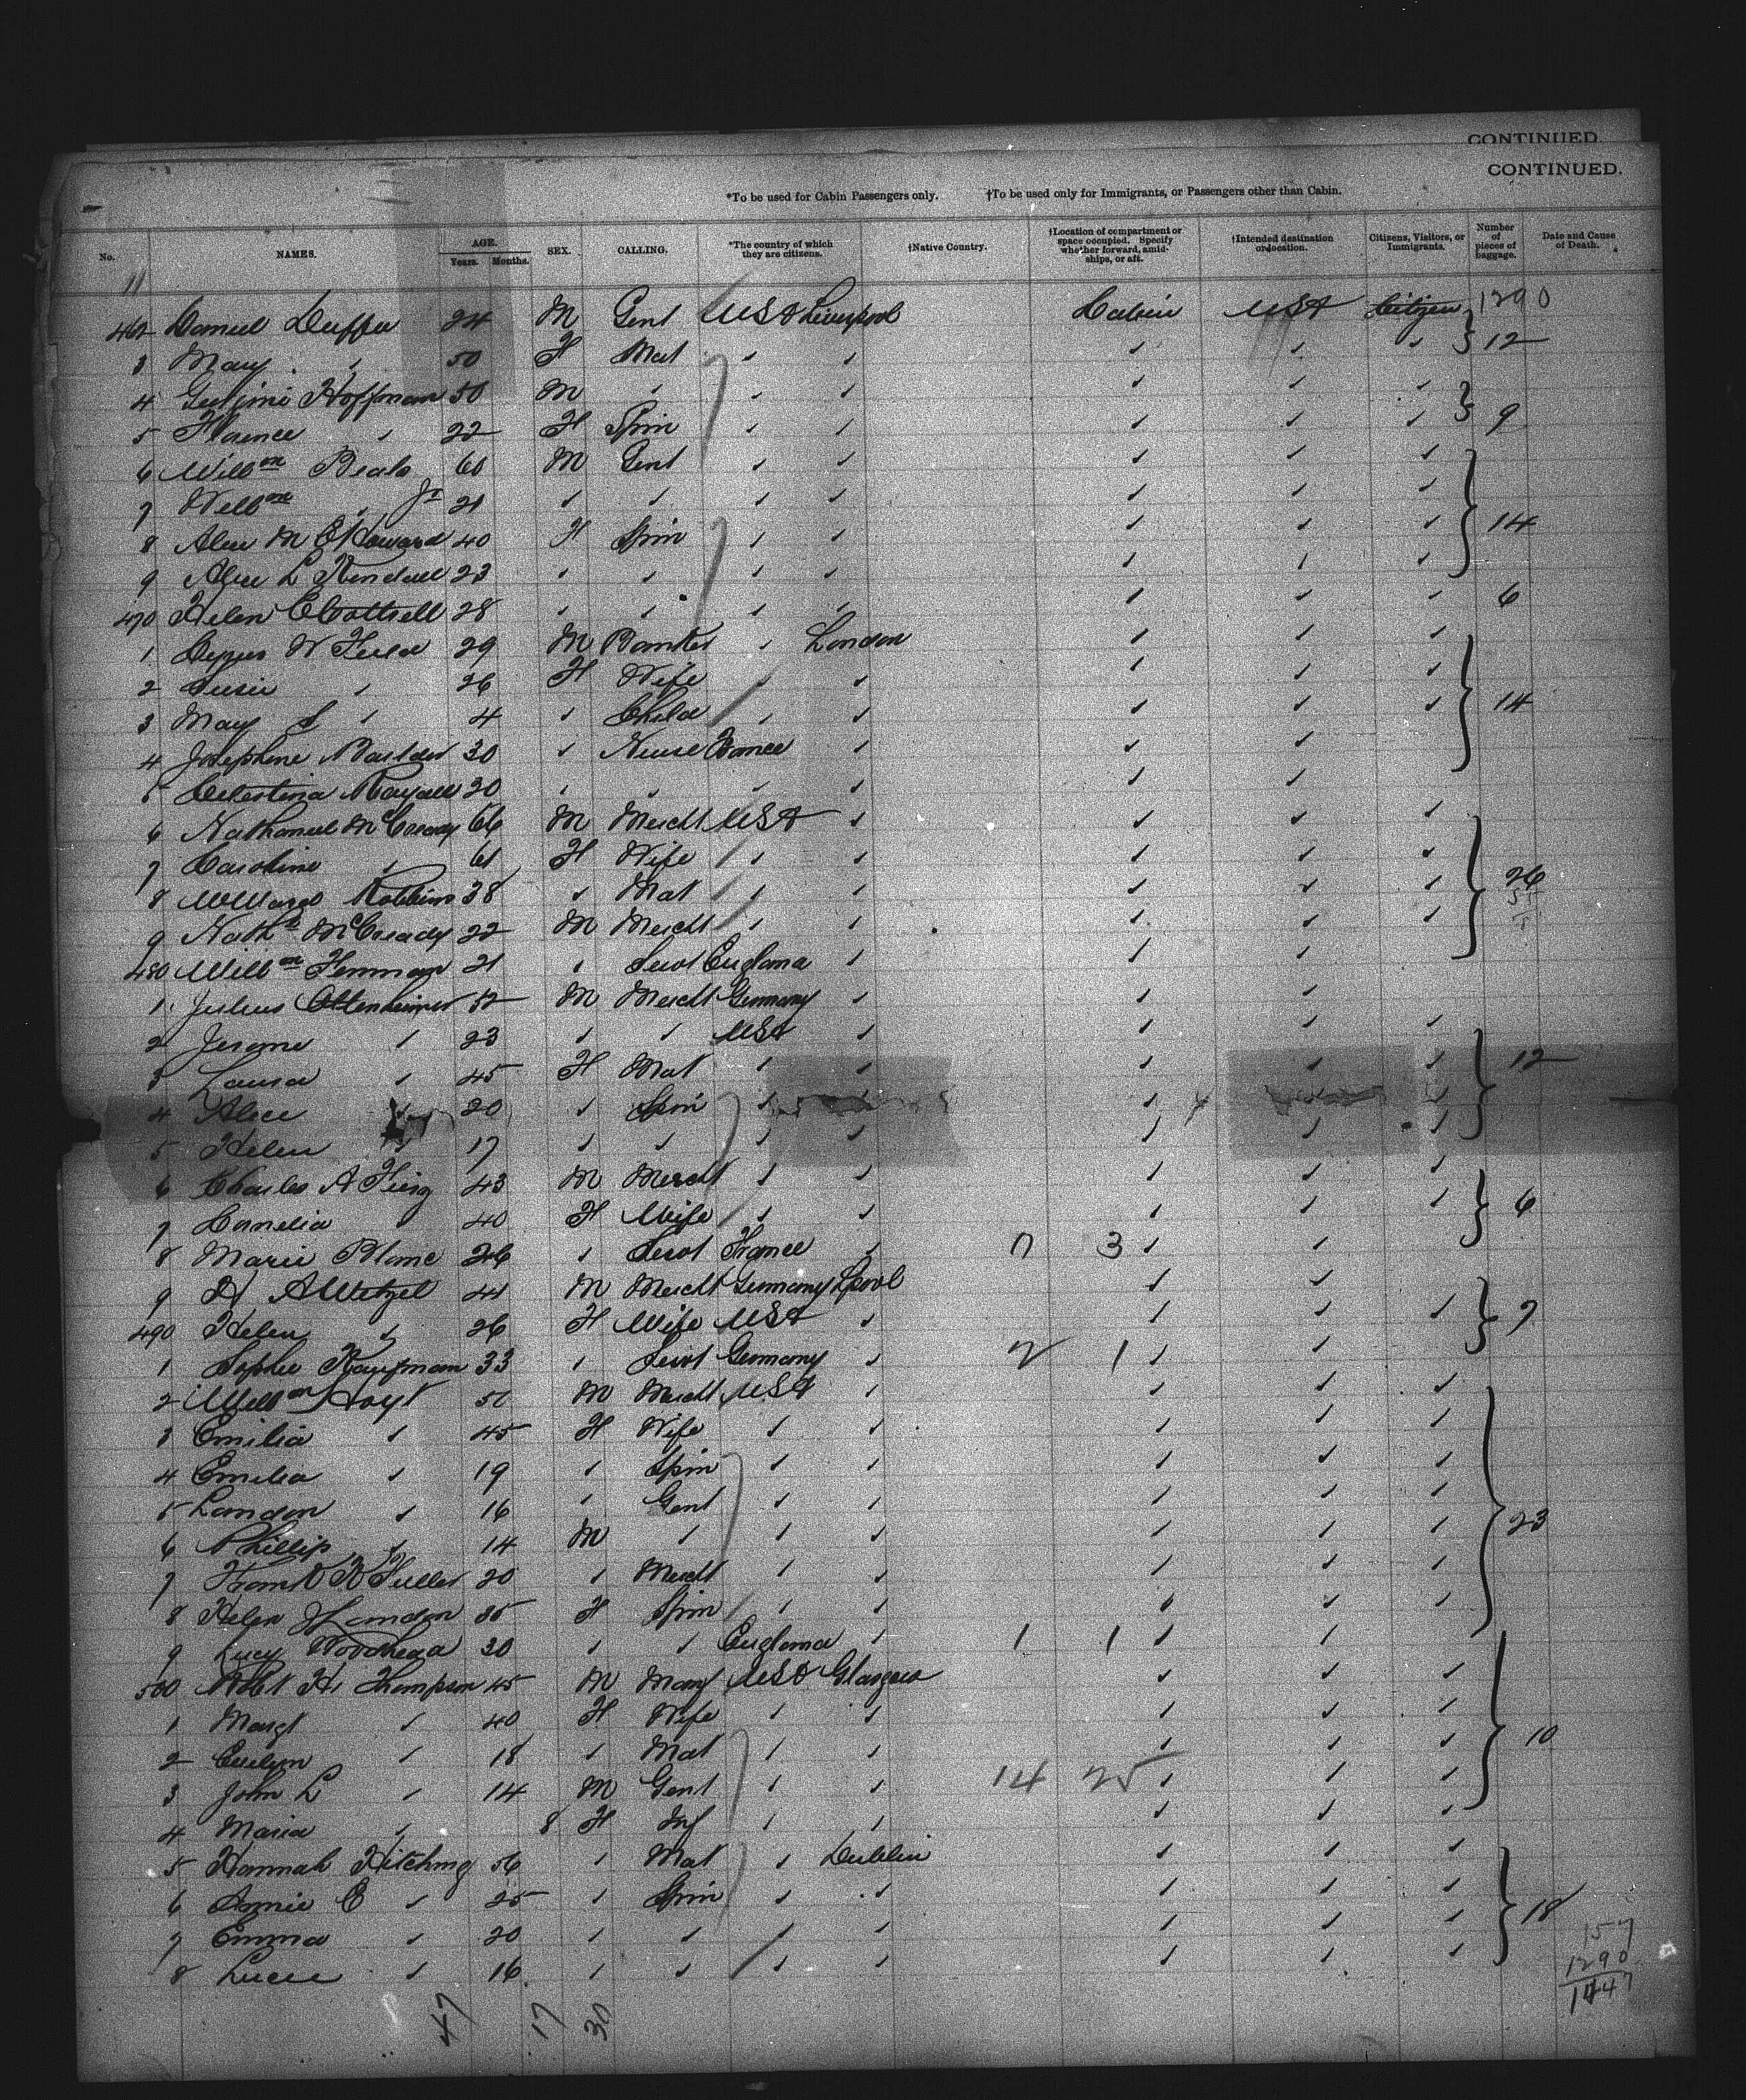 CONTINUED.
CONTINUED.
*To be used for Cabin Passengers only. †To be used only for Immigrants, or Passengers other than Cabin.
No. NAMES. AGE. Years. Months. SEX. CALLING. *The country of which they are citizens. †Native Country. †Location of compartment or space occupied. Specify whether forward, amidships, or aft. †Intended destination or location. Citizens, Visitors, or Immigrants. Number of pieces of baggage. Date and Cause of Death.
11
462 Daniel 24 M Gent USA Liverpool Cabin USA Citizen 1290
3 Mary " 50 F Mat " " " " " 12
4 Hoffman 50 M " " " " " "
5 Florence " 22 F Spin " " " " " 9
6 Willm Beals 60 M Gent " " " " "
7 Willm " Jr 21 " " " " " " "
8 Alice M 40 F Spin " " " " " 14
9 Alice L Kendall 23 " " " " " " "
470 Helen Cottrell 28 " " " " " " " 6
1 Cyrus W Field 29 M Banker " London " " "
2 Susie " 26 F Wife " " " " "
3 May " 4 " Child " " " " " 14
4 Josephine 30 " Nurse France " " "
5 Celestina 20 " " " " " "
6 Nathaniel McCready 66 M Mercht USA " " " "
7 Caroline " 61 F Wife " " " " "
8 Robbins 38 " Mat " " " " " 26
9 Nathl McCready 22 M Mercht " " " " "
480 Willm 21 " Servt England " " "
1 Julius Ottenheimer 52 M Mercht Germany " " "
2 Jerome " 23 " " USA " " " "
3 Laura " 45 F Mat " " " " " 12
4 Alice " 20 " Spin " " " " "
5 Helen " 17 " " " " " " "
6 Charles A 43 M Mercht " " " " "
7 Cornelia " 40 F Wife " " " " " 6
8 Marie Blanc 26 " Servt France " 3 " "
9 H A Wetzel 41 M Mercht Germany Lpool " "
490 Helen " 26 F Wife USA " " " " 7
1 Sophie Kaufman 33 " Servt Germany " 2 1 " "
2 Willm Hoyt 50 M Mercht USA " " " "
3 Emilia " 45 F Wife " " " " "
4 Emilia " 19 " Spin " " " " "
5 Landon " 16 " Gent " " " " "
6 Phillip " 14 M " " " " " " 23
7 Frank Fuller 20 " Mercht " " " " "
8 Helen Landon 35 F Spin " " " " "
9 Lucy Woodhead 30 " " England " 1 1 " "
500 Robt H Thompson 45 M Manf USA Glasgow " " "
1 Margt " 40 F Wife " " " " "
2 Evelyn " 18 " Mat " " " " " 10
3 John L " 14 M Gent " " 14 25 " " "
4 Maria " 8 F Inf " " " " "
5 Hannah Hitching 56 " Mat " Dublin " " "
6 Annie E " 25 " Spin " " " " "
7 Emma " 20 " " " " " " " 18
8 Lucie " 16 " " " " " " "
157
1290
1447
47 17 30